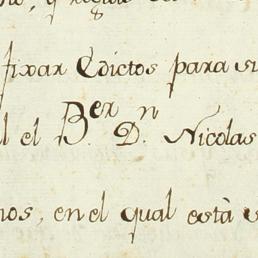 fixar Edictos para su
l el B.er D.n Nicolas
nos, en el qual està